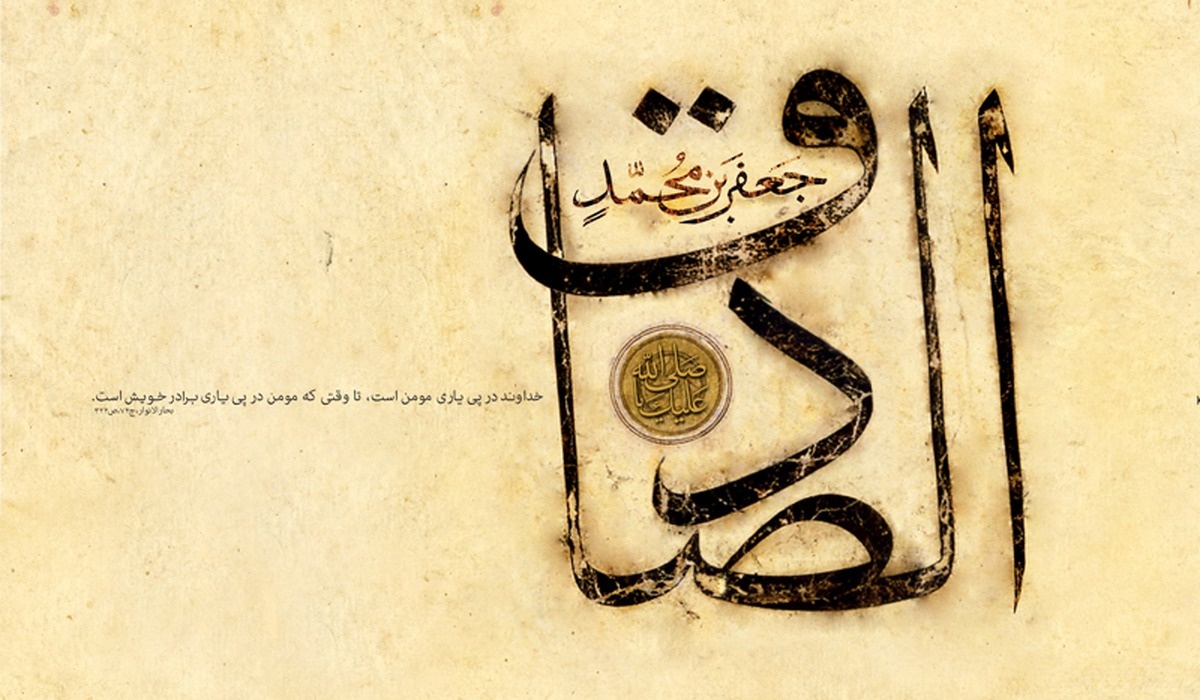 الصادق
جَعفَر بن مُحمّدٍ
صلی الله
علیک یا
خداوند در پی یاری مومن است، تا وقتی که مومن در پی یاری برادر خویش است.
بحارالانوار،ج۷۴،ص۳۲۲